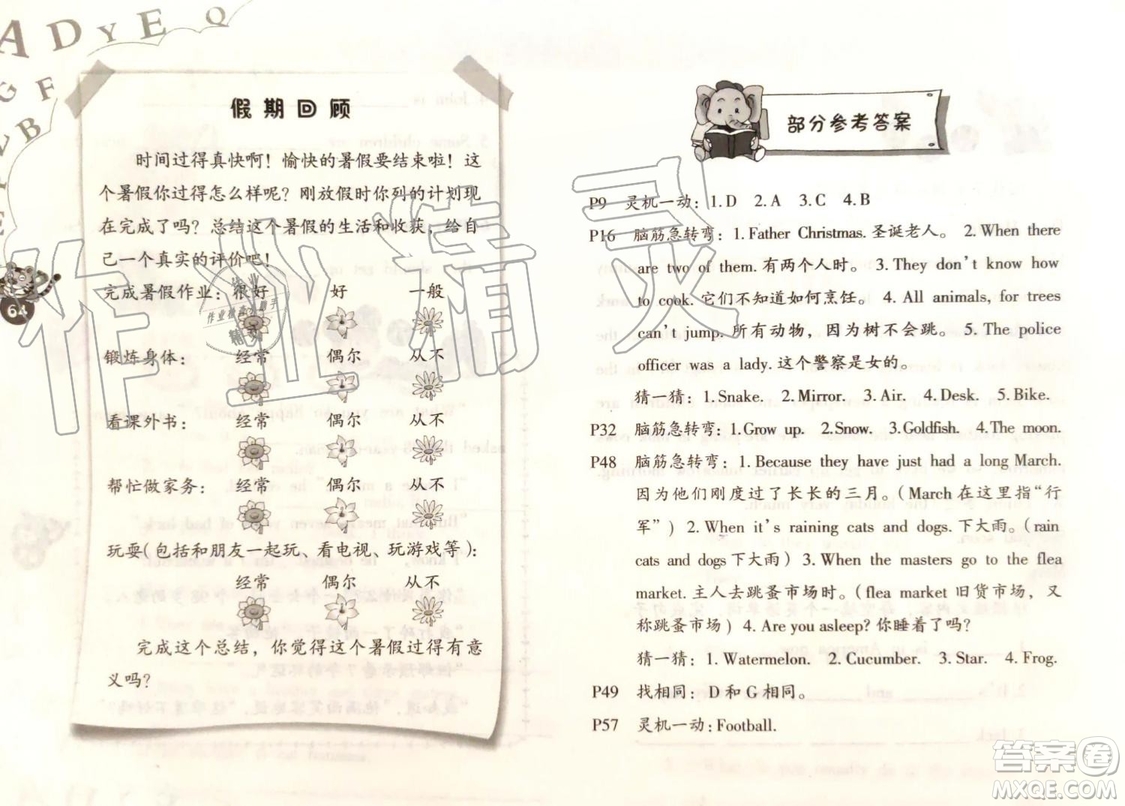 A D Y E Q
G F
B
64
假期回顾
时间过得真快啊！愉快的暑假要结束啦！这
个暑假你过得怎么样呢？刚放假时你列的计划现
在完成了吗？总结这个暑假的生活和收获，给自
己一个真实的评价吧！
完成暑假作业： 很好 好 一般
锻炼身体： 经常 偶尔 从不
看课外书： 经常 偶尔 从不
帮忙做家务： 经常 偶尔 从不
玩耍（包括和朋友一起玩、看电视、玩游戏等）：
经常 偶尔 从不
完成这个总结，你觉得这个暑假过得有意
义吗？
部分参考答案
P9 灵机一动：1. D 2. A 3. C 4. B
P16 脑筋急转弯：1. Father Christmas. 圣诞老人。 2. When there
are two of them. 有两个人时。 3. They don't know how
to cook. 它们不知道如何烹饪。 4. All animals, for trees
can't jump. 所有动物，因为树不会跳。 5. The police
officer was a lady. 这个警察是女的。
猜一猜：1. Snake. 2. Mirror. 3. Air. 4. Desk. 5. Bike.
P32 脑筋急转弯：1. Grow up. 2. Snow. 3. Goldfish. 4. The moon.
P48 脑筋急转弯：1. Because they have just had a long March.
因为他们刚度过了长长的三月。（March 在这里指“行
军”） 2. When it's raining cats and dogs. 下大雨。（rain
cats and dogs 下大雨） 3. When the masters go to the flea
market. 主人去跳蚤市场时。（flea market 旧货市场，又
称跳蚤市场） 4. Are you asleep? 你睡着了吗？
猜一猜：1. Watermelon. 2. Cucumber. 3. Star. 4. Frog.
P49 找相同：D 和 G 相同。
P57 灵机一动：Football.
作业精灵
答案圈
MXQE.COM